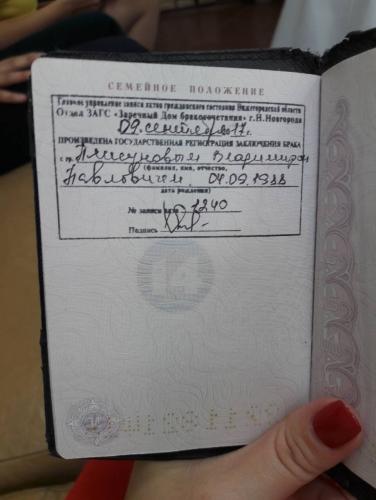 СЕМЕЙНОЕ ПОЛОЖЕНИЕ
Главное управление записи актов гражданского состояния Нижегородской области
Отдел ЗАГС «Заречный Дом бракосочетания» г.Н.Новгорода
09. сентября 17 г.
ПРОИЗВЕДЕНА ГОСУДАРСТВЕННАЯ РЕГИСТРАЦИЯ ЗАКЛЮЧЕНИЯ БРАКА
с гр. Владимиром
(фамилия, имя, отчество,
Павловичем 04.09.1988
дата рождения)
№ записи акта 1240
Подпись
14